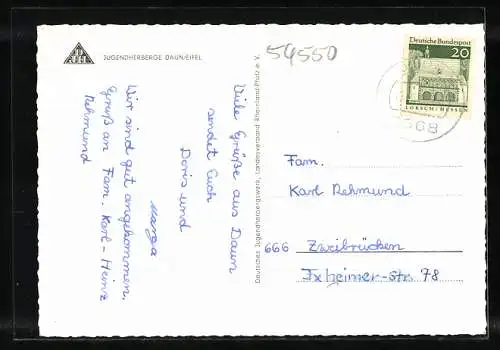 JUGENDHERBERGE DAUN/EIFEL
54550
Deutsche Bundespost
20
LORSCH/HESSEN
568
Viele Grüße aus Daun
sendet Euch
Doris und
Marga
Wir sind gut angekommen.
Gruß an Fam. Karl-Heinz
Rehmund
Deutsches Jugendherbergswerk, Landesverband Rheinland/Pfalz e. V.
Fam.
Karl Rehmund
666 Zweibrücken
Ixheimer-str 78